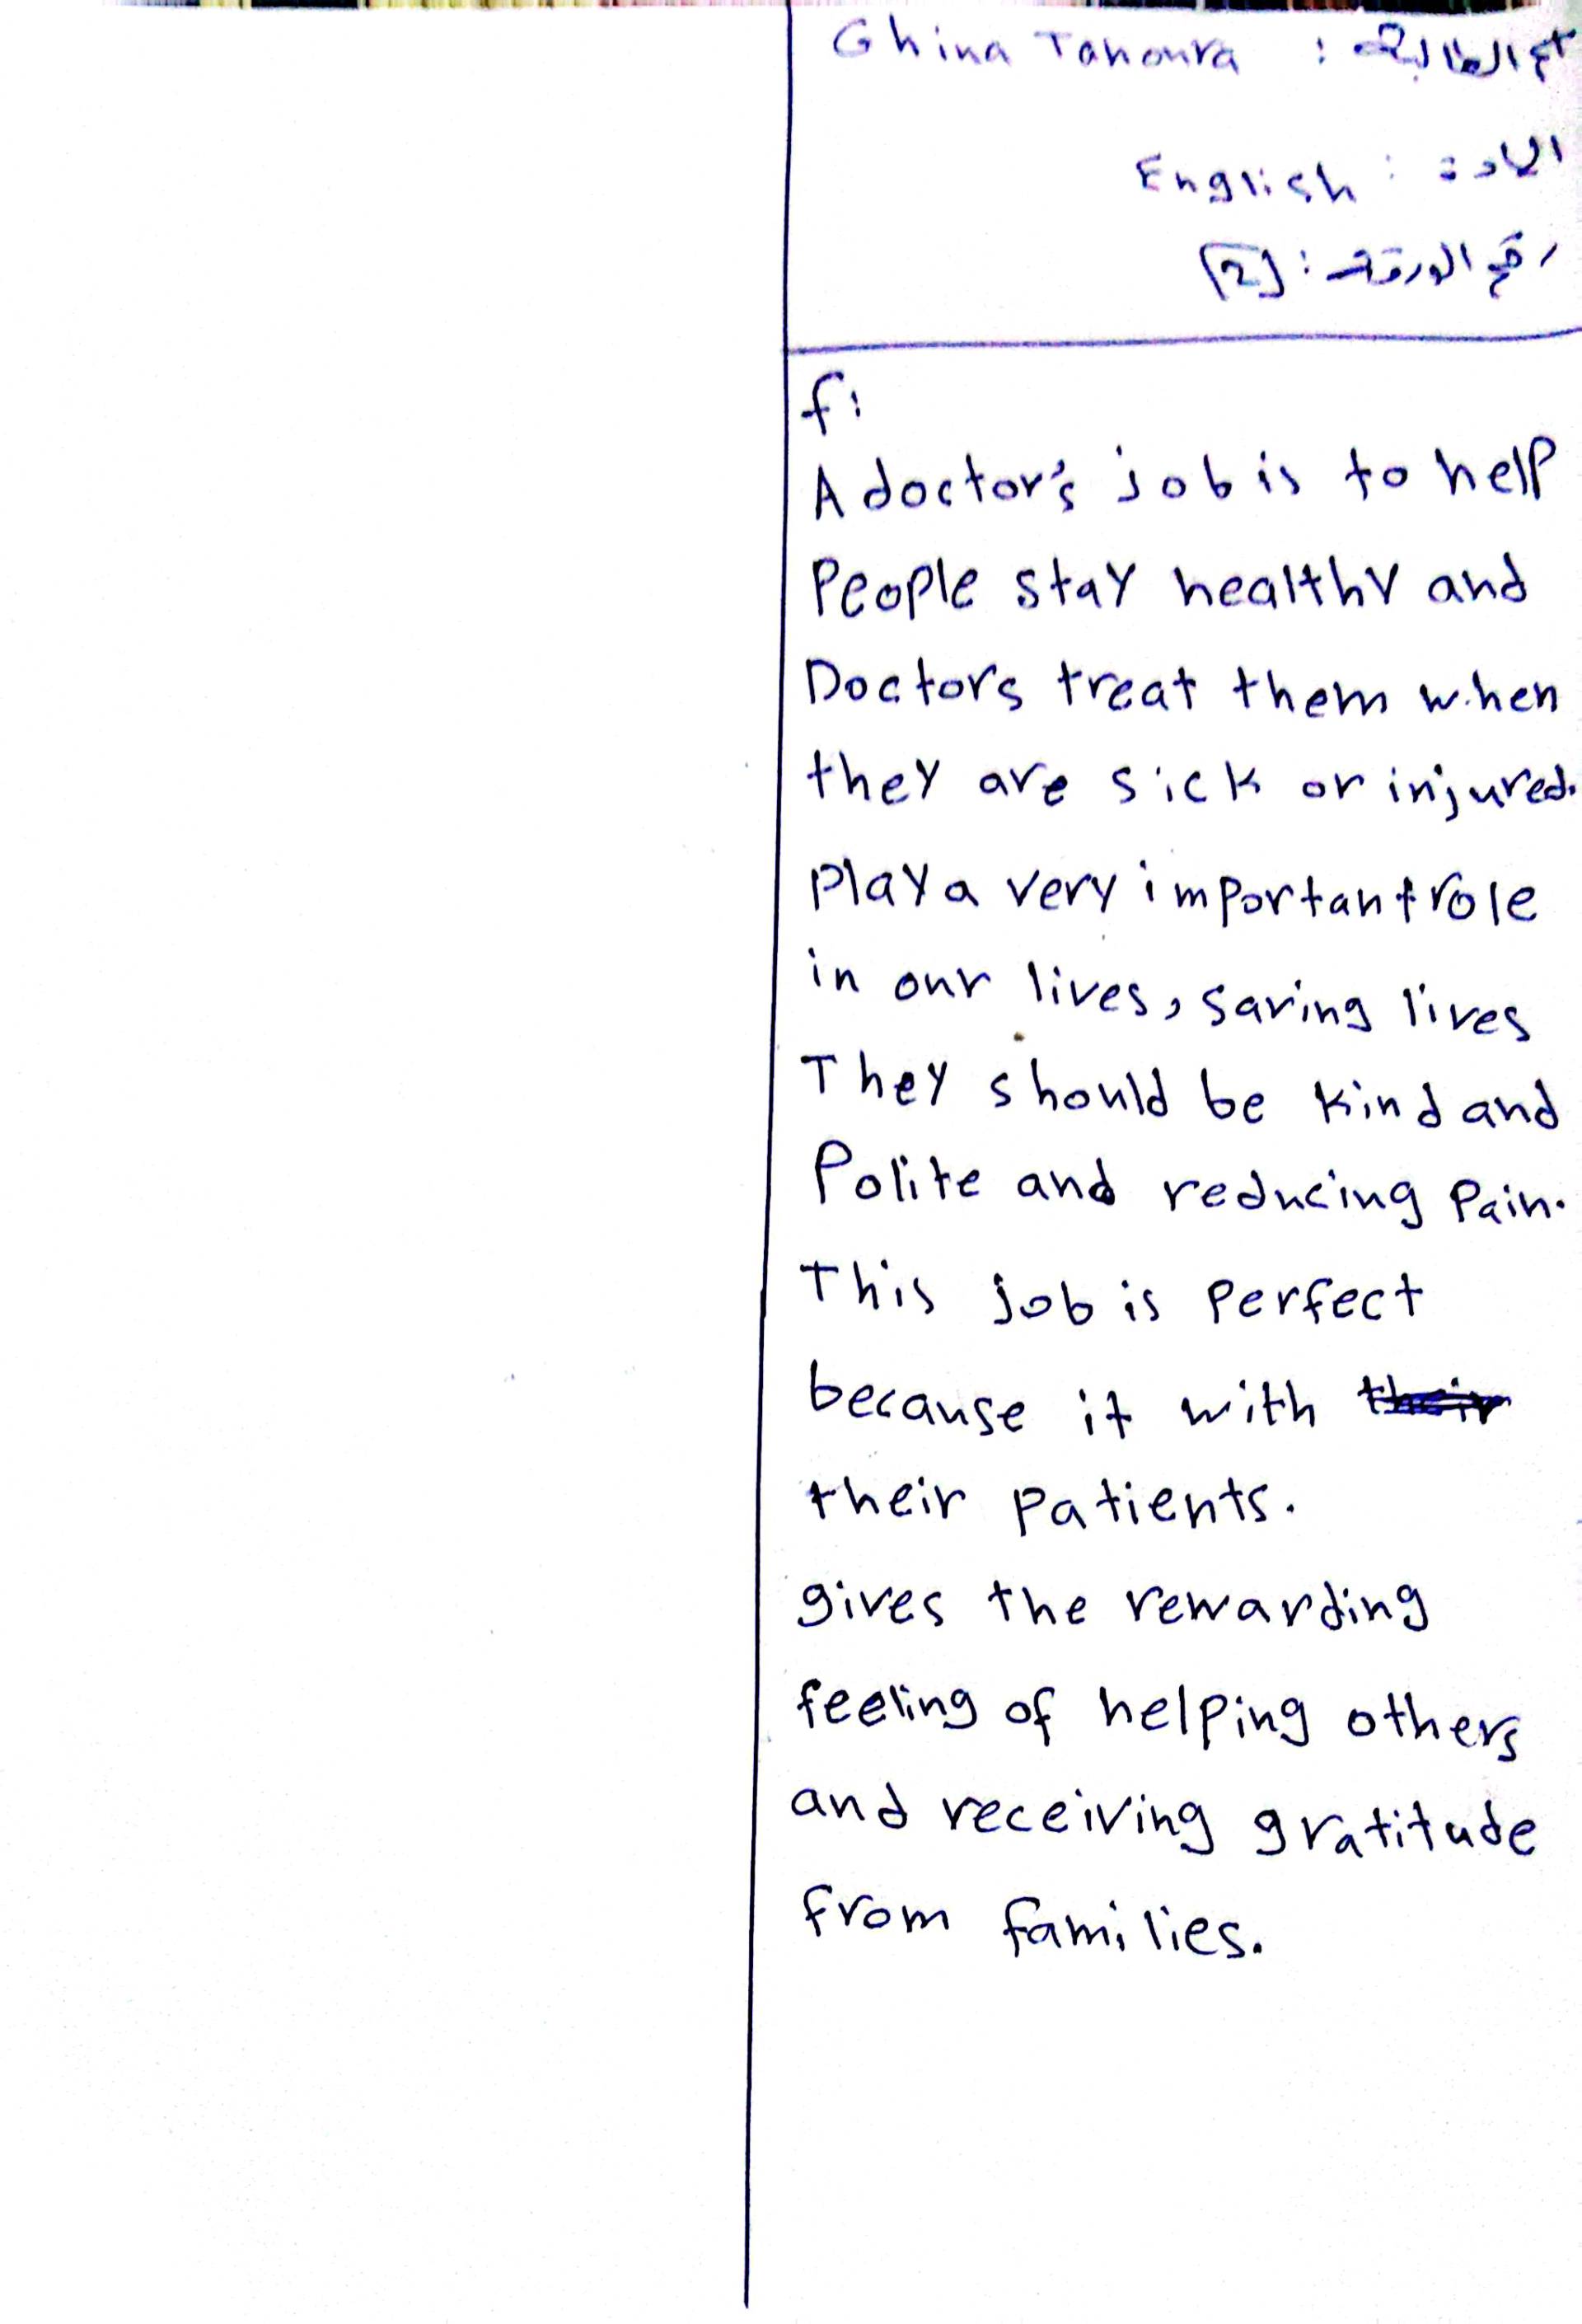 اسم الطالبة : Ghina Tahoura
المادة : English
رقم الورقة : [2]
f:
A doctor's job is to help
People stay healthy and
Doctors treat them when
they are sick or injured.
Play a very important role
in our lives, saving lives
They should be kind and
Polite and reducing Pain.
This job is Perfect
because it with their
their patients.
gives the rewarding
feeling of helping others
and receiving gratitude
from families.